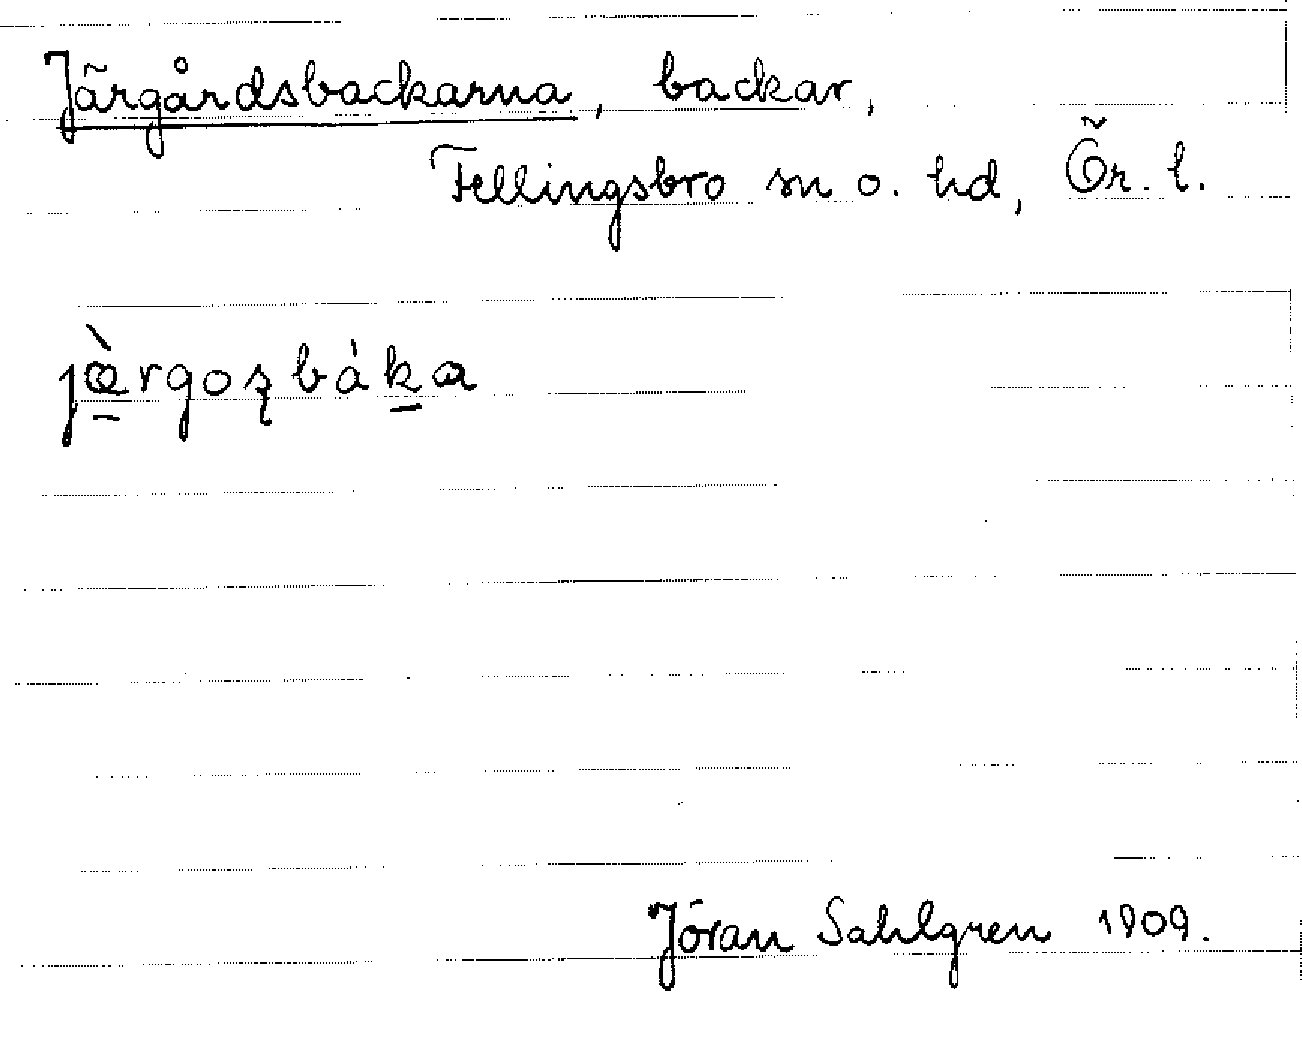 Järgårdsbackarna, backar,
Fellingsbro sn o. hd, Ör. l.
jæ̀rgosbáka
Jöran Sahlgren 1909.